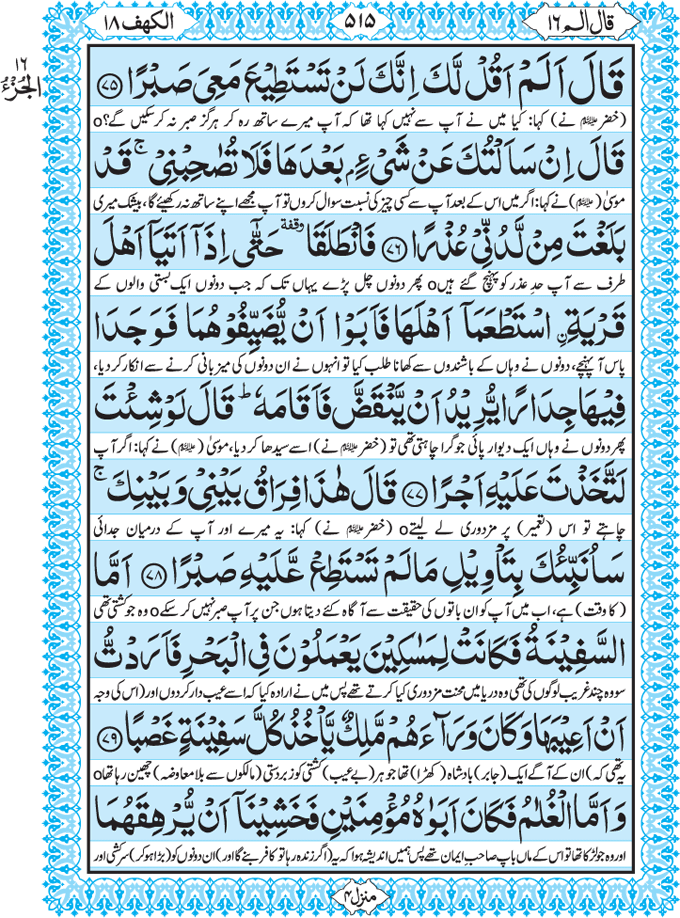 قال الم ۱۶
۵۱۵
الكهف ۱۸
۱۶
الجزء
قَالَ اَلَمْ اَقُلْ لَّكَ اِنَّكَ لَنْ تَسْتَطِيْعَ مَعِيَ صَبْرًا ۷۵
(خضر علیہ السلام نے) کہا: کیا میں نے آپ سے نہیں کہا تھا کہ آپ میرے ساتھ رہ کر ہرگز صبر نہ کر سکیں گے؟o
قَالَ اِنْ سَاَلْتُكَ عَنْ شَيْءٍۭ بَعْدَهَا فَلَا تُصٰحِبْنِيْ ۚ قَدْ
موسیٰ (علیہ السلام) نے کہا: اگر میں اس کے بعد آپ سے کسی چیز کی نسبت سوال کروں تو آپ مجھے اپنے ساتھ نہ رکھیئے گا، بیشک میری
بَلَغْتَ مِنْ لَّدُنِّيْ عُذْرًا ۷۶ فَانْطَلَقَا ۥ وقفة حَتّٰۤى اِذَاۤ اَتَيَاۤ اَهْلَ
طرف سے آپ حدِ عذر کو پہنچ گئے ہیںo پھر دونوں چل پڑے یہاں تک کہ جب دونوں ایک بستی والوں کے
قَرْيَةِ ِ۟اسْتَطْعَمَاۤ اَهْلَهَا فَاَبَوْا اَنْ يُّضَيِّفُوْهُمَا فَوَجَدَا
پاس آ پہنچے، دونوں نے وہاں کے باشندوں سے کھانا طلب کیا تو انہوں نے ان دونوں کی میزبانی کرنے سے انکار کر دیا،
فِيْهَا جِدَارًا يُّرِيْدُ اَنْ يَّنْقَضَّ فَاَقَامَهٗ ؕ قَالَ لَوْ شِئْتَ
پھر دونوں نے وہاں ایک دیوار پائی جو گرا چاہتی تھی تو (خضر علیہ السلام نے) اسے سیدھا کر دیا، موسیٰ (علیہ السلام) نے کہا: اگر آپ
لَتَّخَذْتَ عَلَيْهِ اَجْرًا ۷۷ قَالَ هٰذَا فِرَاقُ بَيْنِيْ وَ بَيْنِكَ ۚ
چاہتے تو اس (تعمیر) پر مزدوری لے لیتےo (خضر علیہ السلام نے) کہا: یہ میرے اور آپ کے درمیان جدائی
سَاُنَبِّئُكَ بِتَاْوِيْلِ مَا لَمْ تَسْتَطِعْ عَّلَيْهِ صَبْرًا ۷۸ اَمَّا
(کا وقت) ہے، اب میں آپ کو ان باتوں کی حقیقت سے آگاہ کئے دیتا ہوں جن پر آپ صبر نہیں کر سکےo وہ جو کشتی تھی
السَّفِيْنَةُ فَكَانَتْ لِمَسٰكِيْنَ يَعْمَلُوْنَ فِي الْبَحْرِ فَاَرَدْتُّ
سو وہ چند غریب لوگوں کی تھی وہ دریا میں محنت مزدوری کیا کرتے تھے پس میں نے ارادہ کیا کہ اسے عیب دار کر دوں اور (اس کی وجہ
اَنْ اَعِيْبَهَا وَ كَانَ وَرَآءَهُمْ مَّلِكٌ يَّاْخُذُ كُلَّ سَفِيْنَةٍ غَصْبًا ۷۹
یہ تھی کہ) ان کے آگے ایک (جابر) بادشاہ (کھڑا) تھا جو ہر (بے عیب) کشتی کو زبردستی (مالکوں سے بلا معاوضہ) چھین رہا تھاo
وَ اَمَّا الْغُلٰمُ فَكَانَ اَبَوٰهُ مُؤْمِنَيْنِ فَخَشِيْنَاۤ اَنْ يُّرْهِقَهُمَا
اور وہ جو لڑکا تھا تو اس کے ماں باپ صاحبِ ایمان تھے پس ہمیں اندیشہ ہوا کہ یہ (اگر زندہ رہا تو کافر بنے گا اور) ان دونوں کو (بڑا ہو کر) سرکشی اور
منزل ۴